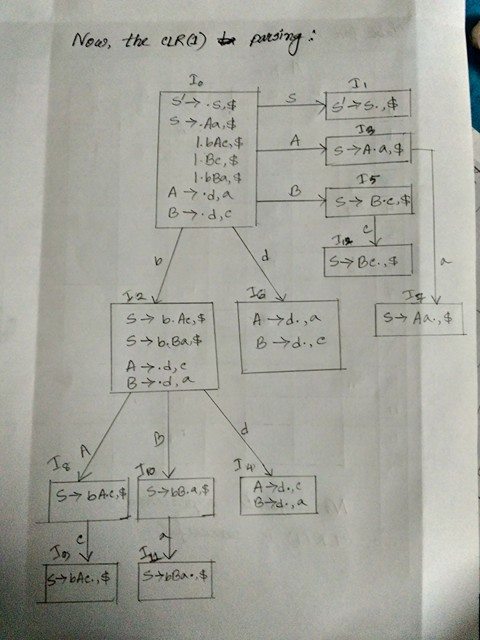 Now, the CLR(1) parsing:
I0
S'→ .S,$
S →.Aa,$
|.bAc,$
|.Bc,$
|.bBa,$
A → .d,a
B → .d,c
S
I1
S'→ S.,$
A
I3
S→A.a,$
B
I5
S→ B.c,$
c
I12
S→Bc.,$
a
S→ Aa.,$
b
d
I2
S→ b.Ac,$
S→ b.Ba,$
A→.d,c
B→.d,a
I6
A→d.,a
B→d.,c
A
B
d
I8
S→bA.c,$
I10
S→bB.a,$
I4
A→d.,c
B→d.,a
c
a
I9
S→bAc.,$
I11
S→bBa.,$